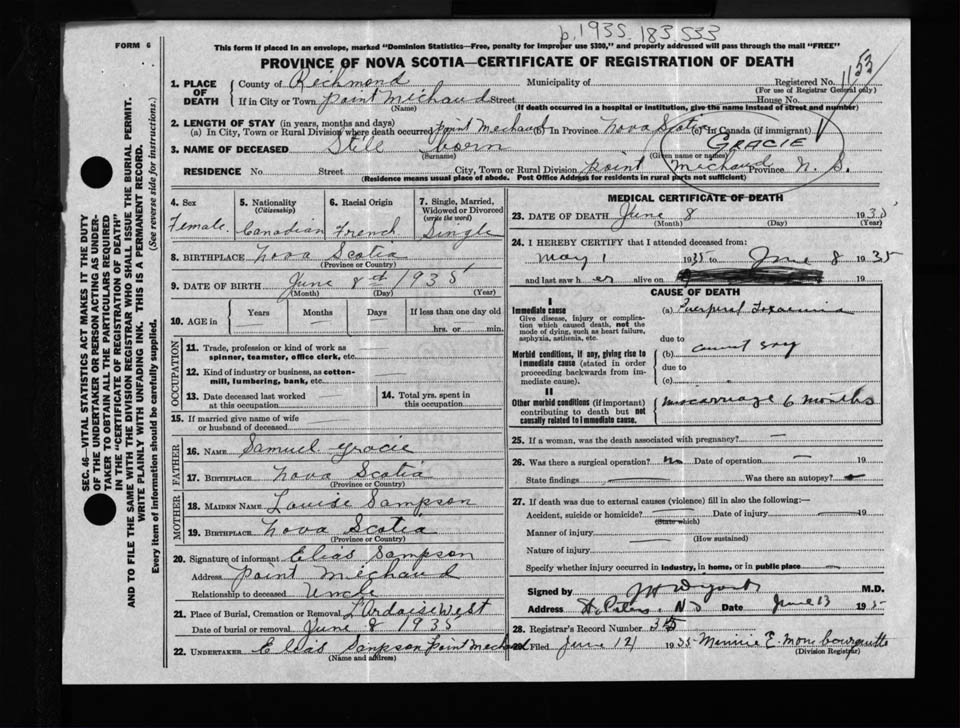 p. 1935. 183 533
FORM 6
This form if placed in an envelope, marked "Dominion Statistics—Free, penalty for improper use $300," and properly addressed will pass through the mail "FREE"
PROVINCE OF NOVA SCOTIA—CERTIFICATE OF REGISTRATION OF DEATH
SEC. 46—VITAL STATISTICS ACT MAKES IT THE DUTY
OF THE UNDERTAKER OR PERSON ACTING AS UNDER-
TAKER TO OBTAIN ALL THE PARTICULARS REQUIRED
IN THE "CERTIFICATE OF REGISTRATION OF DEATH"
AND TO FILE THE SAME WITH THE DIVISION REGISTRAR WHO SHALL ISSUE THE BURIAL PERMIT.
WRITE PLAINLY WITH UNFADING INK. THIS IS A PERMANENT RECORD.
Every item of information should be carefully supplied. (See reverse side for instructions.)
1. PLACE OF DEATH County of Richmond Municipality of Registered No.
(For use of Registrar General only)
53
If in City or Town Point Michaud Street House No.
(Name) (If death occurred in a hospital or institution, give the name instead of street and number)
2. LENGTH OF STAY (in years, months and days)
(a) In City, Town or Rural Division where death occurred Point Michaud (b) In Province Nova Scotia (c) In Canada (if immigrant)
3. NAME OF DECEASED Still born GRACIE
(Surname) (Given name or names)
RESIDENCE No. Street City, Town or Rural Division Point Michaud Province N. S.
(Residence means usual place of abode. Post Office Address for residents in rural parts not sufficient)
4. Sex Female
5. Nationality (Citizenship) Canadian
6. Racial Origin French
7. Single, Married, Widowed or Divorced (write the word) Single
8. BIRTHPLACE Nova Scotia
(Province or Country)
9. DATE OF BIRTH June 8th 1935
(Month) (Day) (Year)
10. AGE in Years Months Days If less than one day old
hrs. or min.
OCCUPATION
11. Trade, profession or kind of work as
spinner, teamster, office clerk, etc.
12. Kind of industry or business, as cotton-
mill, lumbering, bank, etc.
13. Date deceased last worked
at this occupation
14. Total yrs. spent in
this occupation
15. If married give name of wife
or husband of deceased
FATHER
16. NAME Samuel Gracie
17. BIRTHPLACE Nova Scotia
(Province or Country)
MOTHER
18. MAIDEN NAME Louise Sampson
19. BIRTHPLACE Nova Scotia
(Province or Country)
20. Signature of informant Elias Sampson
Address Point Michaud
Relationship to deceased Uncle
21. Place of Burial, Cremation or Removal L'Ardoise West
Date of burial or removal June 8 1935
22. UNDERTAKER Elias Sampson Point Michaud
(Name and address)
MEDICAL CERTIFICATE OF DEATH
23. DATE OF DEATH June 8 1935
(Month) (Day) (Year)
24. I HEREBY CERTIFY that I attended deceased from:
May 1 1935 to June 8 1935
and last saw her alive on 19
CAUSE OF DEATH
I
Immediate cause
Give disease, injury or complica-
tion which caused death, not the
mode of dying, such as heart failure,
asphyxia, asthenia, etc.
(a) Puerperal Toxaemia
due to
Morbid conditions, if any, giving rise to
immediate cause (stated in order
proceeding backwards from im-
mediate cause).
(b) cannot say
due to
(c)
II
Other morbid conditions (if important)
contributing to death but not
causally related to immediate cause.
miscarriage 6 months
25. If a woman, was the death associated with pregnancy?
26. Was there a surgical operation? no Date of operation 19
State findings Was there an autopsy?
27. If death was due to external causes (violence) fill in also the following:—
Accident, suicide or homicide? Date of injury 19
(State which)
Manner of injury
(How sustained)
Nature of injury
Specify whether injury occurred in industry, in home, or in public place
Signed by M.D.
Address St. Peters, N S Date June 13 1935
28. Registrar's Record Number
29. Filed June 12 1935 Minnie E.
(Division Registrar)